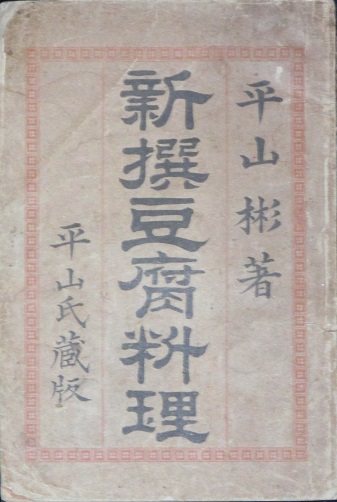 平山彬著
新撰豆腐料理
平山氏蔵版